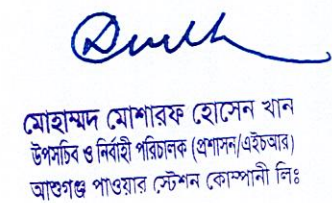 মোহাম্মদ মোশারফ হোসেন খান
উপসচিব ও নির্বাহী পরিচালক (প্রশাসন/এইচআর)
আশুগঞ্জ পাওয়ার স্টেশন কোম্পানী লিঃ